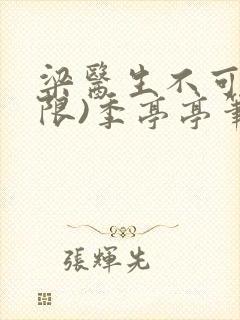 梁醫生不可
限)季亭亭筆
張輝先